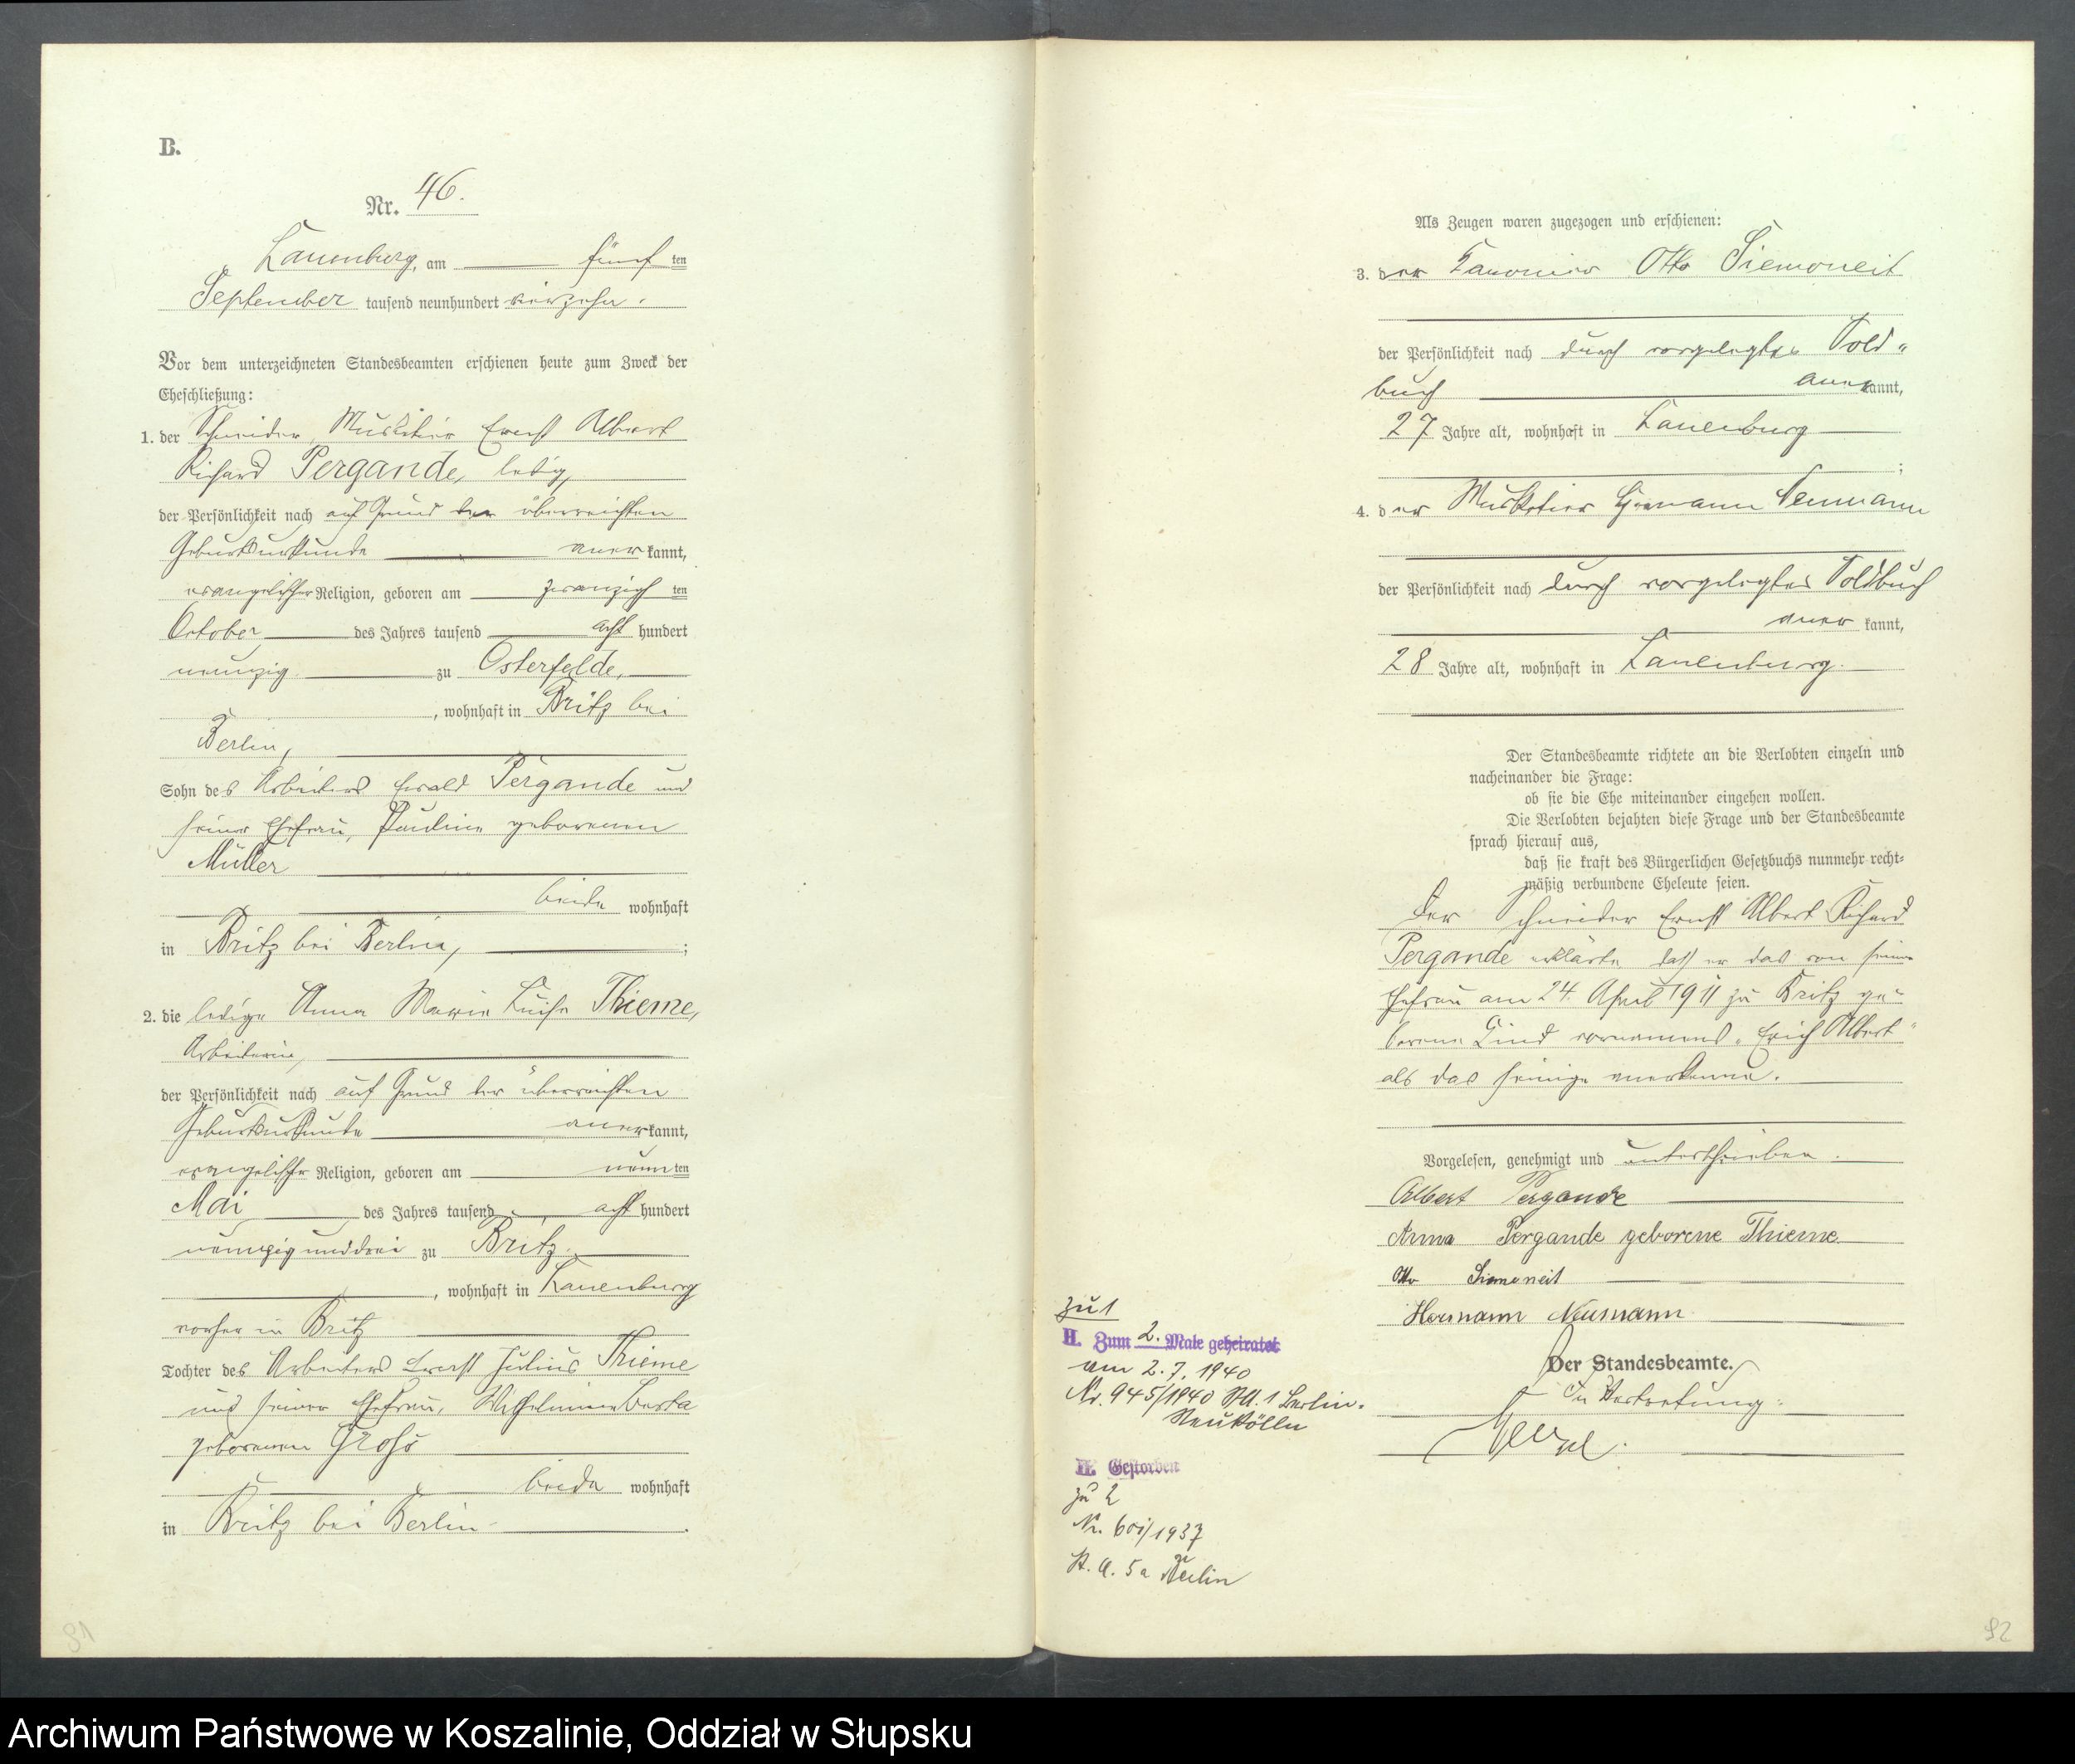 B.
Nr. 46.
Lauenburg, am fünf ten
September tausend neunhundert vierzehn.
Vor dem unterzeichneten Standesbeamten erschienen heute zum Zweck der
Eheschließung:
1. der Schneider, Musketier Ernst Albert
Richard Pergande, ledig,
der Persönlichkeit nach auf Grund der überreichten
Geburtsurkunde anerkannt,
evangelischer Religion, geboren am zwanzigsten
October des Jahres tausend acht hundert
neunzig zu Osterfelde,
, wohnhaft in Britz bei
Berlin,
Sohn des Arbeiters Ewald Pergande und
seiner Ehefrau, Pauline geborenen
Müller
beide wohnhaft
in Britz bei Berlin, ;
2. die ledige Anna Marie Luise Thieme,
Arbeiterin,
der Persönlichkeit nach auf Grund der überreichten
Geburtsurkunde anerkannt,
evangelischer Religion, geboren am neunten
Mai des Jahres tausend acht hundert
neunzig und drei zu Britz
, wohnhaft in Lauenburg
vorher in Britz
Tochter des Arbeiters Ernst Julius Thieme
und seiner Ehefrau, Wilhelmine Berta
geborenen Groß
beide wohnhaft
in Britz bei Berlin .
91
Als Zeugen waren zugezogen und erschienen:
3. der Kanonier Otto Siemoneit
der Persönlichkeit nach durch vorgelegtes Sold-
buch anerkannt,
27 Jahre alt, wohnhaft in Lauenburg
;
4. der Musketier Hermann Neumann
der Persönlichkeit nach durch vorgelegtes Soldbuch
anerkannt,
28 Jahre alt, wohnhaft in Lauenburg.
Der Standesbeamte richtete an die Verlobten einzeln und
nacheinander die Frage:
ob sie die Ehe miteinander eingehen wollen.
Die Verlobten bejahten diese Frage und der Standesbeamte
sprach hierauf aus,
daß sie kraft des Bürgerlichen Gesetzbuchs nunmehr recht-
mäßig verbundene Eheleute seien.
Der Schneider Ernst Albert Richard
Pergande erklärte, daß er das von seiner
Ehefrau am 24. April 1911 zu Britz ge-
borene Kind vornamens "Erich Albert"
als das seinige anerkenne.
Vorgelesen, genehmigt und unterschrieben.
Albert Pergande
Anna Pergande geborene Thieme
Otto Siemoneit
Hermann Neumann
Der Standesbeamte.
In Vertretung:
zu 1
II. Zum 2. Male geheiratet
am 2.7.1940
Nr. 945/1940 StA. 1 Berlin-
Neukölln
II. Gestorben
zu 2
Nr. /1937
St. A. 5a Berlin
92
Archiwum Państwowe w Koszalinie, Oddział w Słupsku